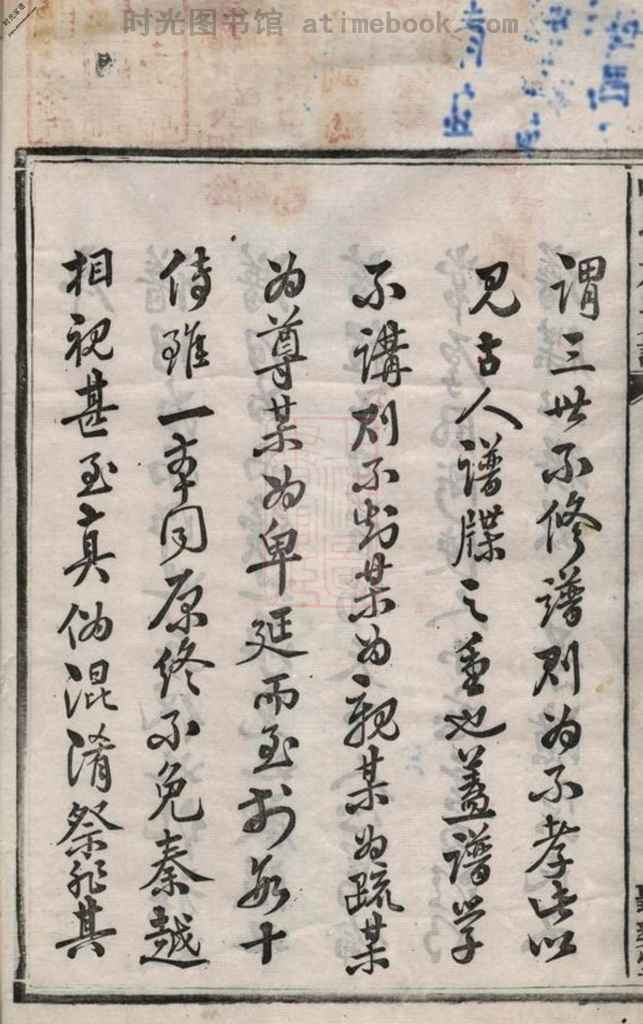 时光图书馆 atimebook.com
謂三世不修譜則为不孝此以
见古人譜牒之重也蓋譜学
不講則不知某为親某为疏某
为尊某为卑延而至於数十
传雖一本同原終不免秦越
相視甚至真伪混淆祭非其